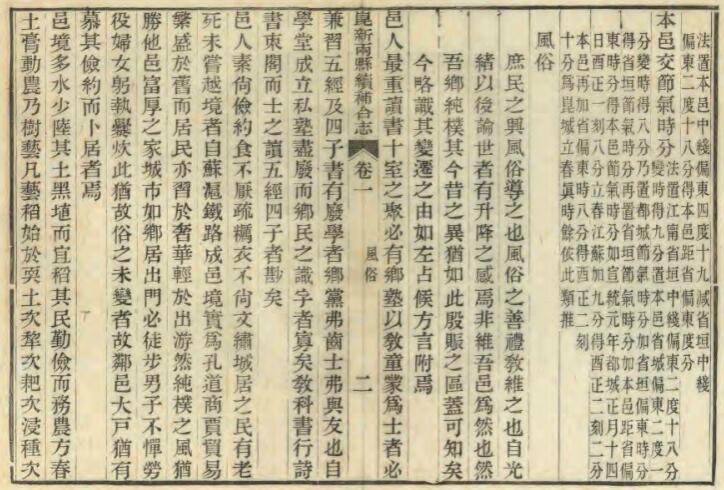 法置本邑中綫偏東四度十九減省垣中綫
偏東二度十八分得本邑距省偏東度分
本邑交節氣時分
法置江南省垣中綫偏東二度十八分
變時得九分置本邑省城偏東二度一
分變時得八分乃置都城節氣時分加省垣偏東時分
得省垣節氣時分再置省垣節氣時分加本邑距省偏
東時分得本邑節氣時分如宣統元年都城正月十四
日酉正一刻八分立春江蘇加九分得酉正二刻二分
本邑再加省城偏東時八分得酉正二刻
十分爲崑城立春眞時餘依此類推
風俗
庶民之興風俗導之也風俗之善禮教維之也自光
緒以後論世者有升降之感焉非維吾邑爲然也然
吾鄉純樸其今昔之異猶如此殷賑之區蓋可知矣
今略識其變遷之由如左占候方言附焉
邑人最重讀書十室之聚必有鄉塾以教童蒙爲士者必
崑新兩縣續補合志 卷一 風俗 二
兼習五經及四子書有廢學者鄉黨弗齒士弗與友也自
學堂成立私塾盡廢而鄉民之識字者寡矣教科書行詩
書束閣而士之讀五經四子者尠矣
邑人素尙儉約食不厭疏糲衣不尙文繡城居之民有老
死未嘗越境者自蘇滬鐵路成邑境實爲孔道商賈貿易
繁盛於舊而居民亦習於奢華輕於出游然純樸之風猶
勝他邑富厚之家城市如鄉居出門必徒步男子不憚勞
役婦女躬執爨炊此猶故俗之未變者故鄰邑大戸猶有
慕其儉約而卜居者焉
邑境多水少陸其土黑埴而宜稻其民勤儉而務農方春
土膏動農乃樹藝凡藝稻始於耎土次犂次耙次浸種次